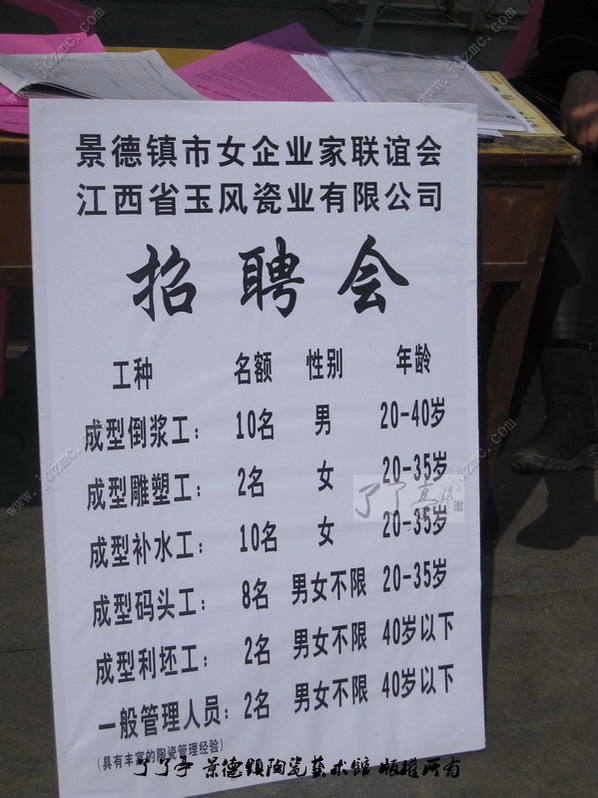 景德镇市女企业家联谊会
江西省玉风瓷业有限公司
招聘会
工种 名额 性别 年龄
成型倒浆工： 10名 男 20-40岁
成型雕塑工： 2名 女 20-35岁
成型补水工： 10名 女 20-35岁
成型码头工： 8名 男女不限 20-35岁
成型利坯工： 2名 男女不限 40岁以下
一般管理人员： 2名 男女不限 40岁以下
（具有丰富的陶瓷管理经验）
了了亭 景德镇陶瓷艺术馆 版权所有
www.jdzmc.com